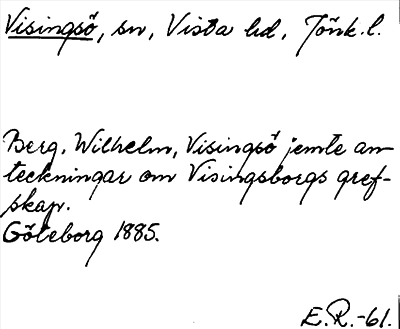 Visingsö, sn, Vista hd, Jönk. l.
Berg, Wilhelm, Visingsö jemte an-
teckningar om Visingsborgs gref-
skap.
Göteborg 1885.
E.R.-61.